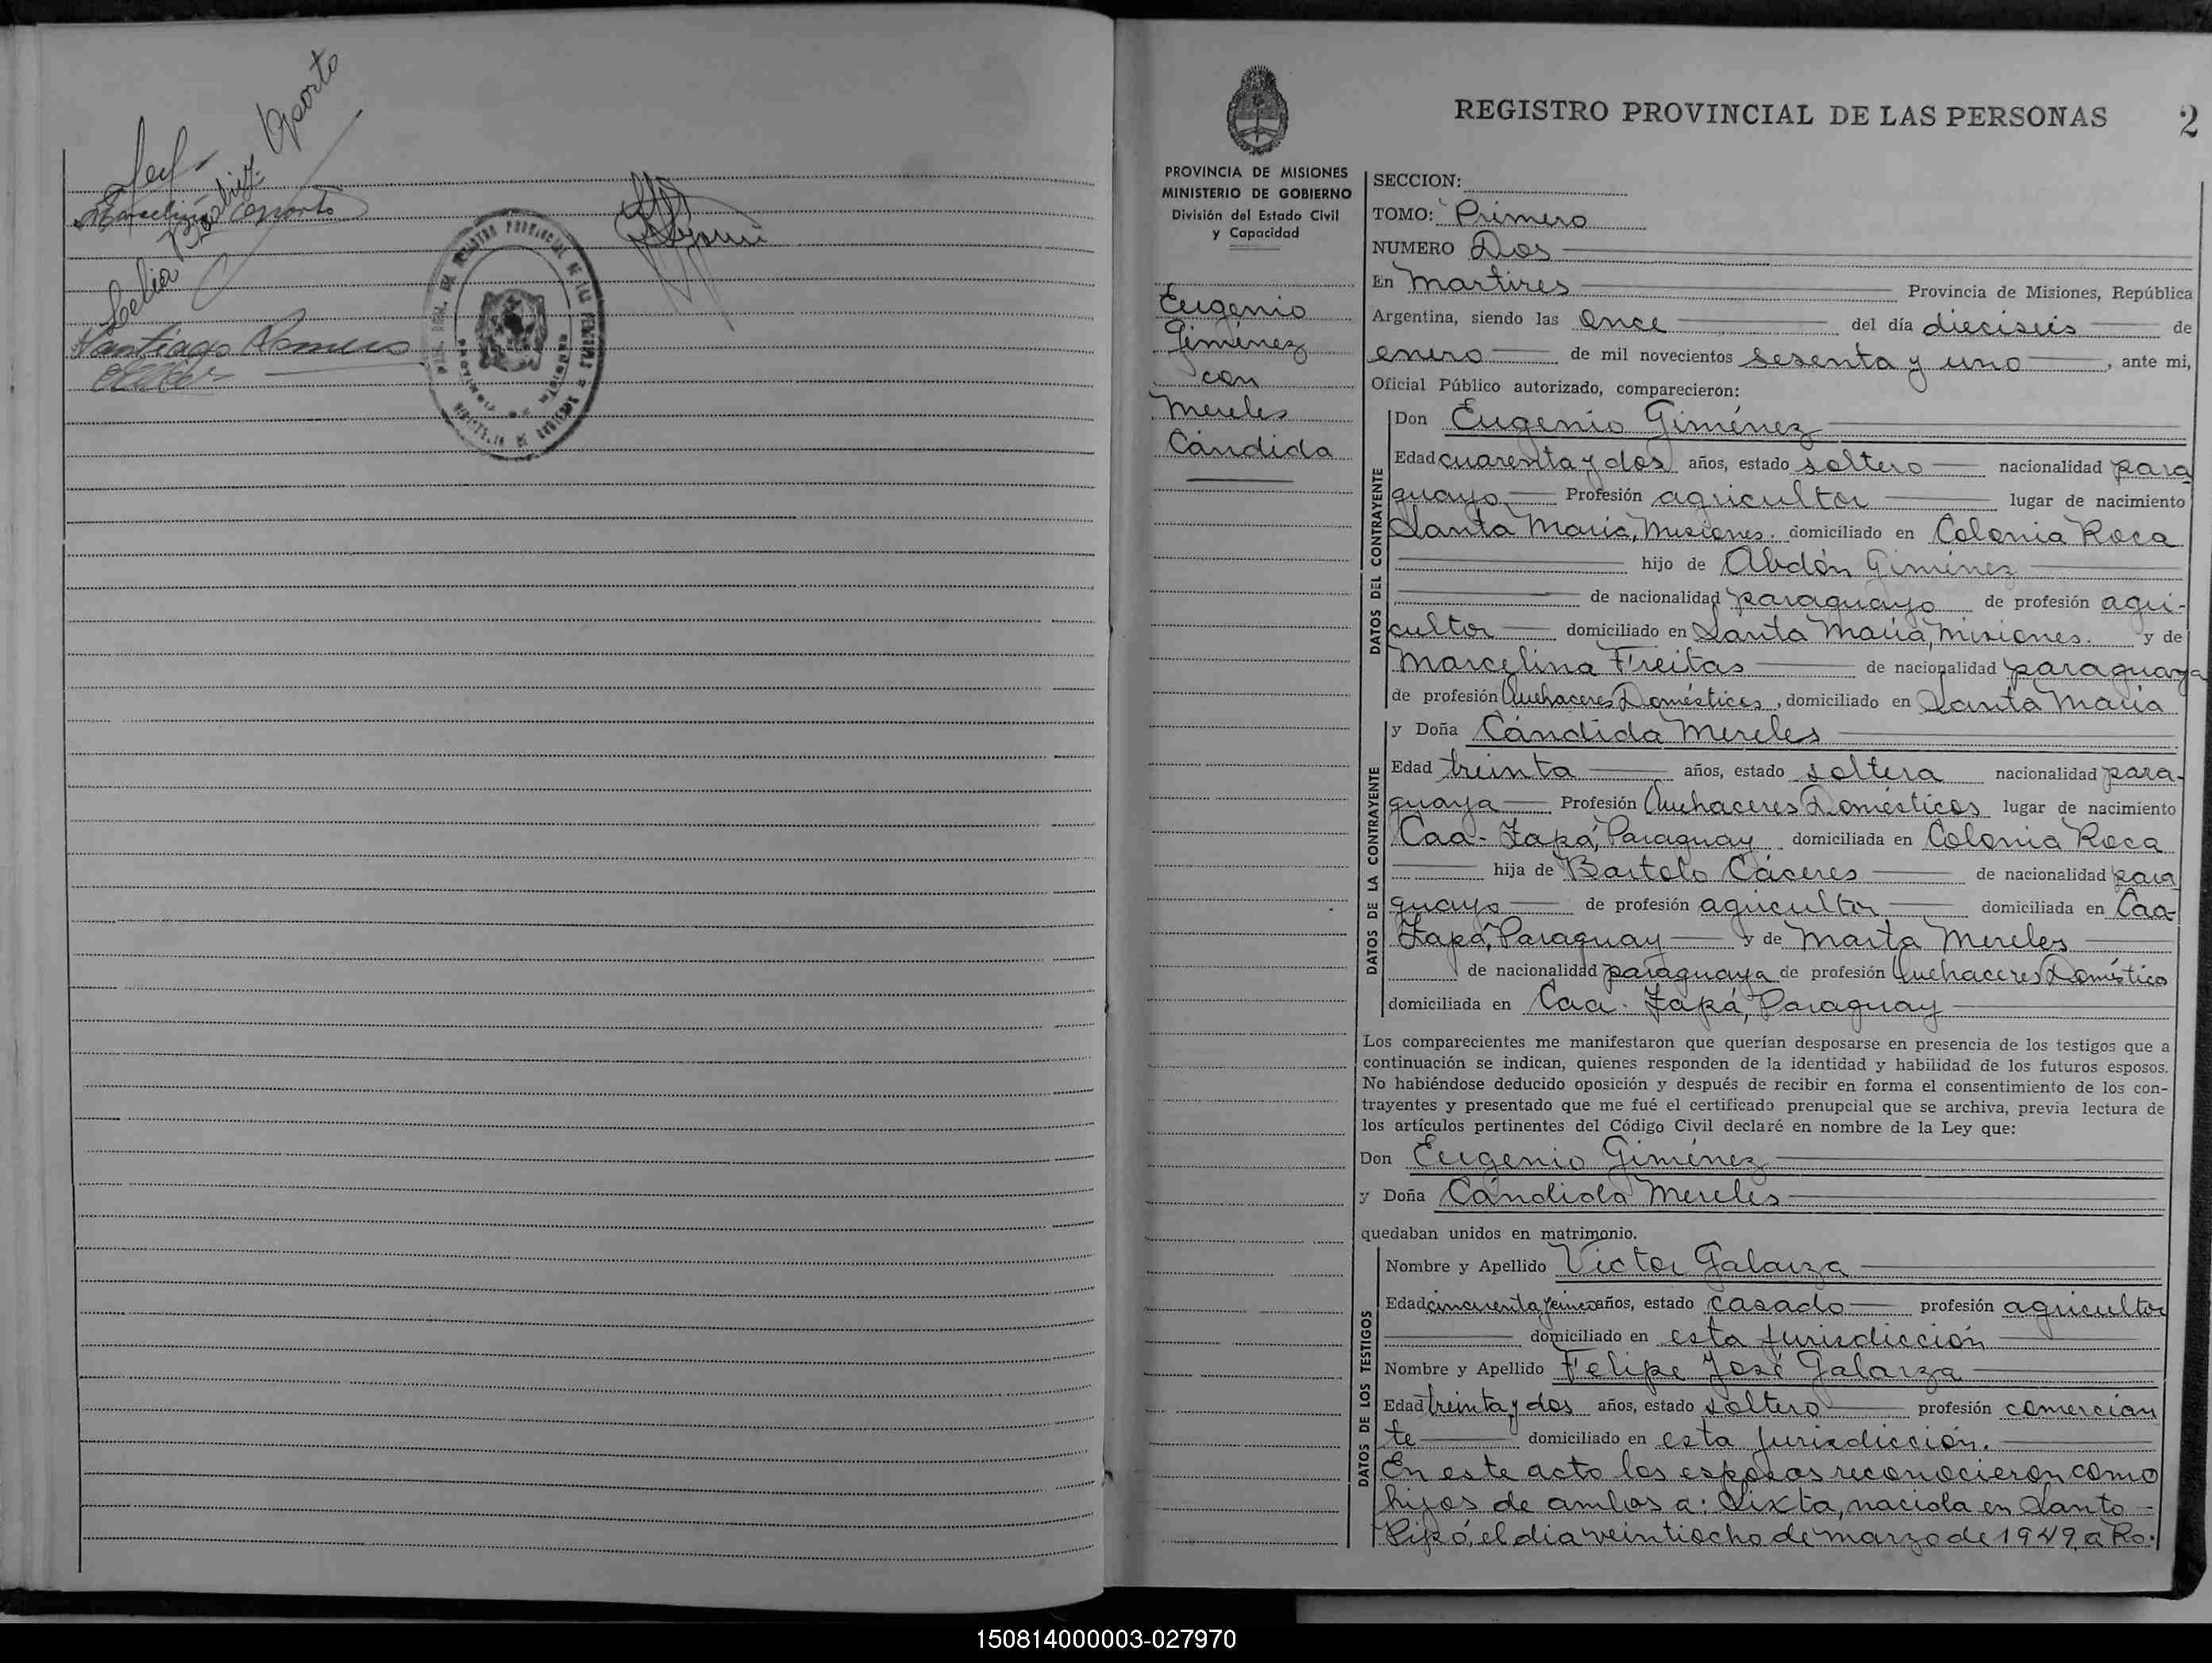 Marcelino Oporto
Celia Benitez Oporto
Santiago Romero
REGISTRO PROVINCIAL DE LAS PERSONAS 2
PROVINCIA DE MISIONES
MINISTERIO DE GOBIERNO
División del Estado Civil
y Capacidad
Eugenio
Giménez
con
Mereles
Cándida
SECCION:
TOMO: Primero
NUMERO Dos
En Martires Provincia de Misiones, República
Argentina, siendo las once del día dieciseis de
enero de mil novecientos sesenta y uno, ante mi,
Oficial Público autorizado, comparecieron:
DATOS DEL CONTRAYENTE
Don Eugenio Giménez
Edad cuarenta y dos años, estado soltero nacionalidad para
guayo Profesión agricultor lugar de nacimiento
Santa María, Misiones. domiciliado en Colonia Roca
hijo de Abdón Giménez
de nacionalidad paraguayo de profesión agri-
cultor domiciliado en Santa María, Misiones. y de
Marcelina Freitas de nacionalidad paraguaya
de profesión Quehaceres Domésticos, domiciliado en Santa María
DATOS DE LA CONTRAYENTE
y Doña Cándida Mereles
Edad treinta años, estado soltera nacionalidad para-
guaya Profesión Quehaceres Domésticos lugar de nacimiento
Caa-Zapá, Paraguay domiciliada en Colonia Roca
hija de Bartolo Cáceres de nacionalidad para
guayo de profesión agricultor domiciliada en Caa-
Zapá, Paraguay y de Marta Mereles
de nacionalidad paraguaya de profesión Quehaceres Doméstico
domiciliada en Caa-Zapá, Paraguay
Los comparecientes me manifestaron que querían desposarse en presencia de los testigos que a
continuación se indican, quienes responden de la identidad y habilidad de los futuros esposos.
No habiéndose deducido oposición y después de recibir en forma el consentimiento de los con-
trayentes y presentado que me fué el certificado prenupcial que se archiva, previa lectura de
los artículos pertinentes del Código Civil declaré en nombre de la Ley que:
Don Eugenio Giménez
y Doña Cándida Mereles
quedaban unidos en matrimonio.
DATOS DE LOS TESTIGOS
Nombre y Apellido Victor Galarza
Edad cincuenta y cinco años, estado casado profesión agricultor
domiciliado en esta jurisdicción
Nombre y Apellido Felipe José Galarza
Edad treinta y dos años, estado soltero profesión comercian
te domiciliado en esta jurisdicción.
En este acto los esposos reconocieron como
hijos de ambos a: Sixta, nacida en Santo
Pipó, el dia veintiocho de marzo de 1949, a Ro.
150814000003-027970